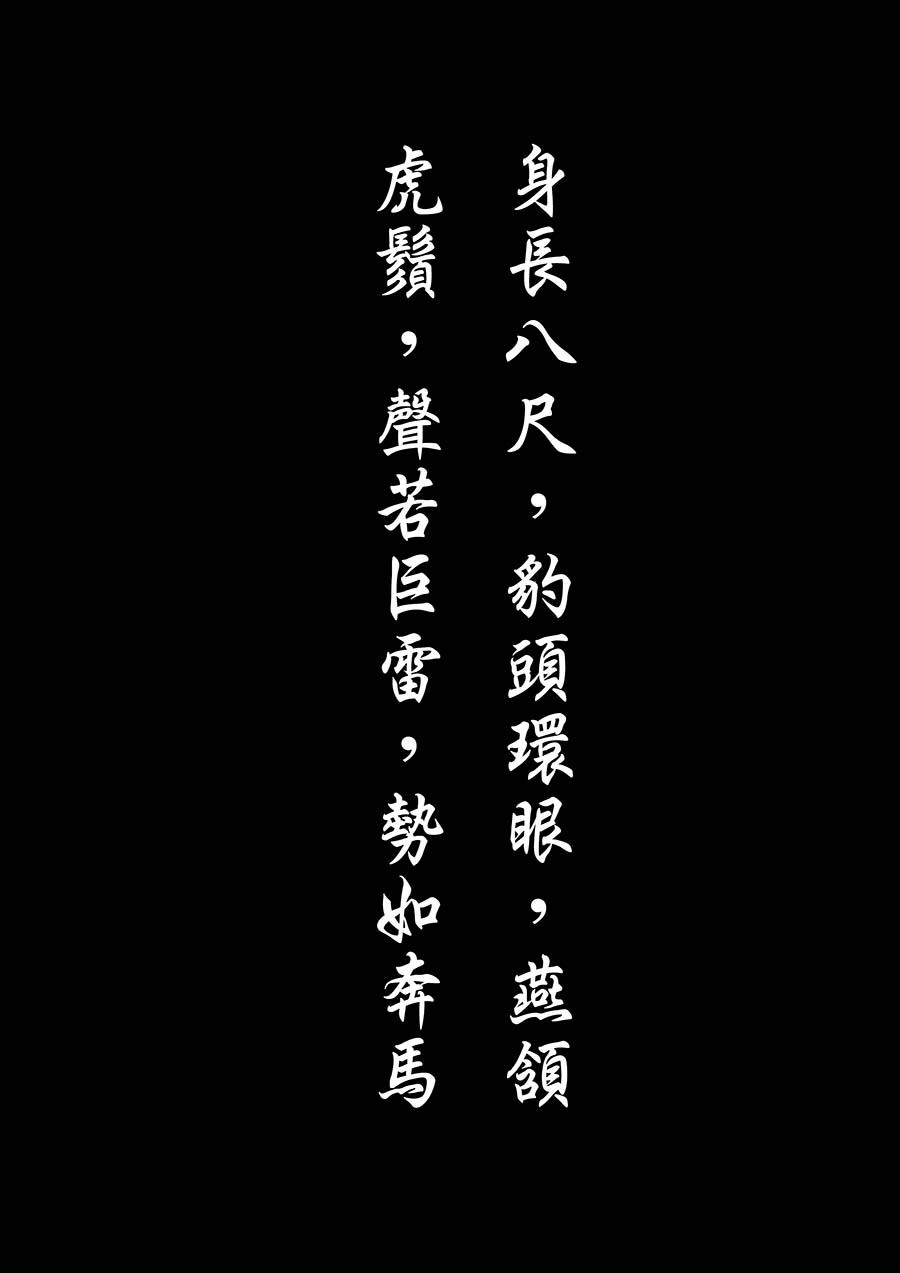 身長八尺，豹頭環眼，燕頷
虎鬚，聲若巨雷，勢如奔馬